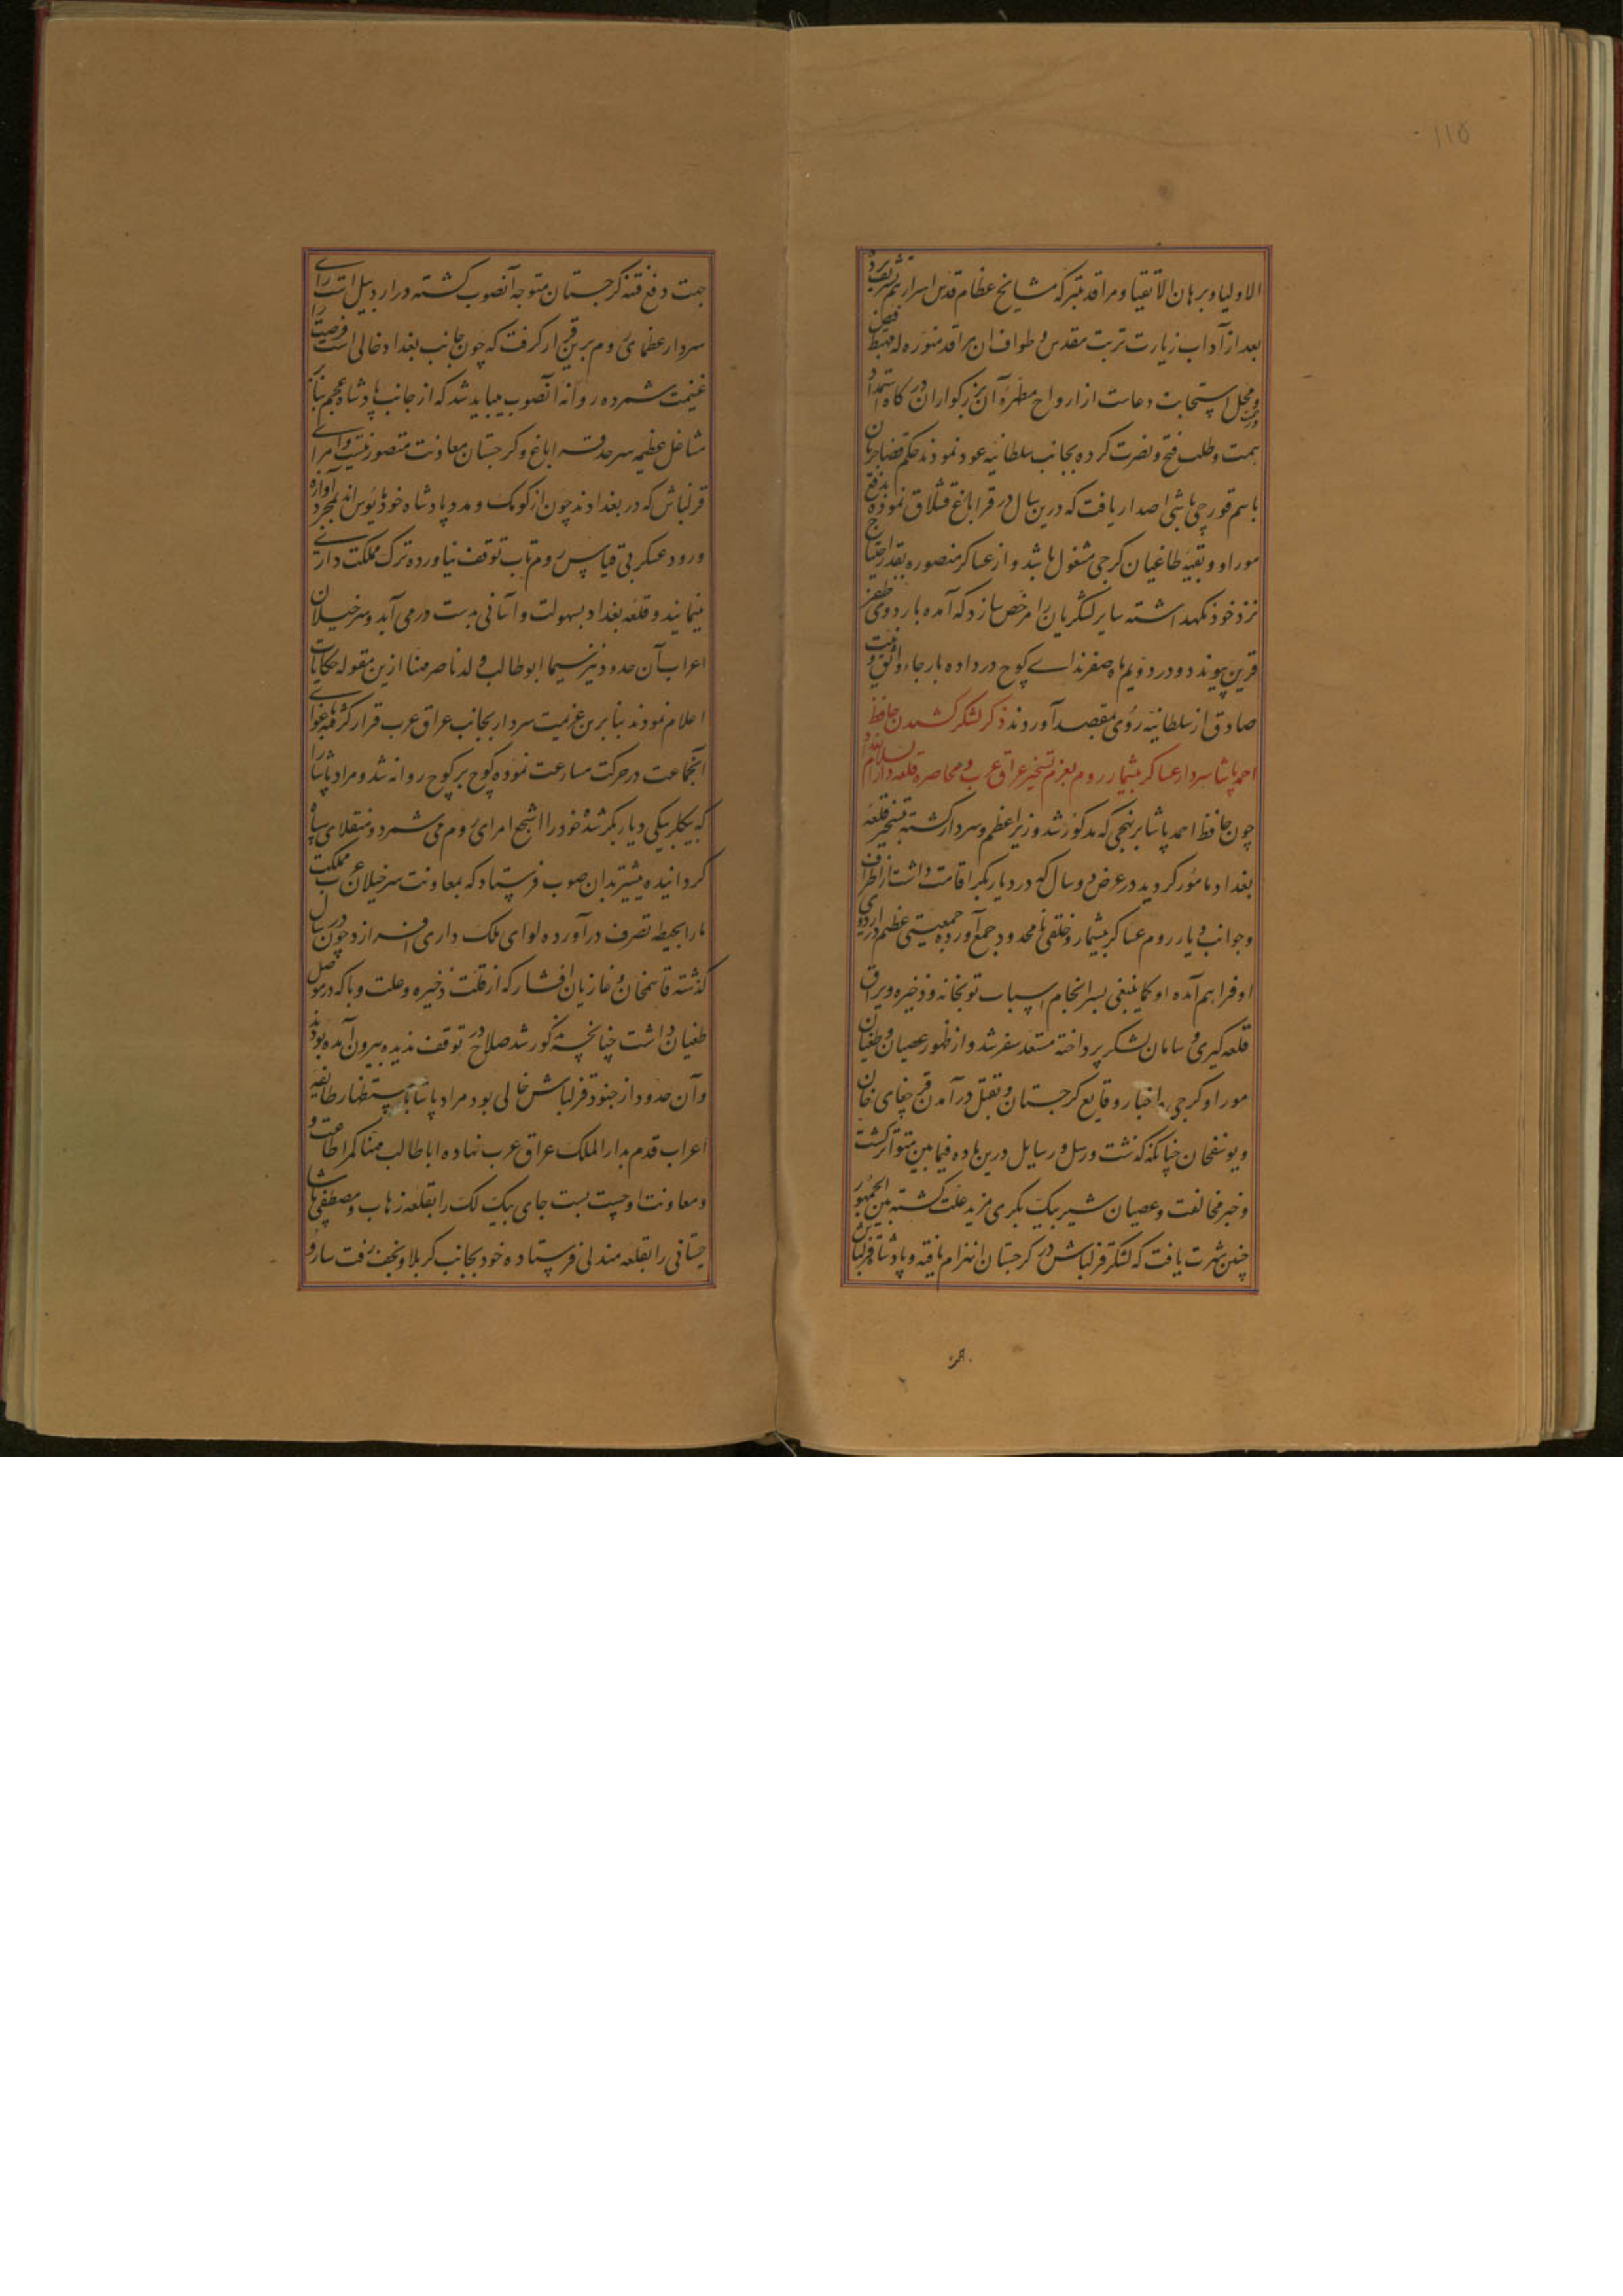 ۱۱۵
الاولیا و برهان الاتقیا و مراقد متبرکه مشایخ عظام قدس اسرارهم شریف برد
بعد از آداب زیارت تربت مقدس و طواف ان مراقد منوره که مهبط فیض
و محل استجابت دعاست از ارواح مطهره آن بزرکواران در کاه استمداد
همت و طلب فتح و نصرت کرده بجانب سلطانیه عود نمودند حکم قضا جریان
باسم قورچی باشی اصدار یافت که درین سال در قراباغ قشلاق نموده بدفع
موراو و بقیه طاغیان کرجی مشغول باشد و از عساکر منصوره بقدر احتیاج
نزد خود نکهداشته سایر لشکریان را مرخص سازد که آمده باردوی ظفر
قرین پیوندد و در دویم ماه صفر ندای کوچ در داده بار جاء واثق و نیت
صادق از سلطانیه روی بمقصد آوردند ذکر لشکر کشیدن حافظ
احمد پاشا سردار عساکر بیشمار روم بعزم تسخیر عراق عرب و محاصره قلعه دارالسلام
چون حافظ احمد پاشا بر نهجی که مذکور شد وزیر اعظم و سردار کشته بتسخیر قلعه
بغداد مامور کردید در عرض دو سال که در دیار بکر اقامت داشت از اطراف
و جوانب دیار روم عساکر بیشمار و خلقی نامحدود جمع آورده جمعیتی عظیم در اردوی
او فراهم آمده او کما ینبغی بسرانجام اسباب توپخانه و ذخیره و یراق
قلعه کیری و سامان لشکر پرداخته مستعد سفر شد و از ظهور عصیان و طغیان
موراو کرجی و اخبار وقایع کرجستان و بقتل درآمدن قرچغای خان
و یوسفخان چنانکه گذشت و رسل و رسایل درین ماده فیما بین متواتر کشت
و خبر مخالفت و عصیان شیر بیک بکری مزید علت کشته بین الجمهور
چنین شهرت یافت که لشکر قزلباش در کرجستان انهزام یافته و پادشاه قزلباش
جهت دفع فتنه کرجستان متوجه آنصوب کشته در اردبیل است رای
سردار عظمای روم برین قرار کرفت که چون جانب بغداد خالی است فرصت را
غنیمت شمرده روانه آنصوب میباید شد که از جانب پادشاه عجم بنابر
مشاغل عظیمه سرحد قراباغ و کرجستان معاونت متصور نیست و امرای
قزلباش که در بغدادند چون از کومک و مدد پادشاه خود مایوس اند بمجرد آوازه
ورود عسکر بی قیاس روم تاب توقف نیاورده ترک مملکت داری
مینمایند و قلعه بغداد بسهولت و آسانی بدست درمی آید و سرخیلان
اعراب آن حدود نیز سیما ابوطالب ولد ناصر مهنا ازین مقوله حکایات
اعلام نمودند بنابرین عزیمت سردار بجانب عراق عرب قرار کرفته باغوای
آنجماعت در حرکت مسارعت نموده کوچ بر کوچ روانه شد و مراد پاشا را
که بیکلربیکی دیار بکر شده خود را اشجع امرای روم می شمرد و منقلای سپاه
کردانیده پیشتر بدان صوب فرستاد که بمعاونت سرخیلان عرب مملکت
مارا بحیطه تصرف درآورده لوای ملک داری افرازد و چون در سال
گذشته قاسمخان و غازیان افشار که از قلت ذخیره و علت وبا که در موصل
طغیان داشت چنانچه مذکور شد صلاح در توقف ندیده بیرون آمده بودند
و آن حدود از جنود قزلباش خالی بود مراد پاشا باستظهار طایفه
اعراب قدم بدار الملک عراق عرب نهاده اباطالب مهنا کمر اطاعت و
و معاونت او چست بست جای بیک لک را بقلعه زهاب و مصطفی پاشا
حتانی را بقلعه مندلی فرستاده خود بجانب کربلا و نجف رفت سارو